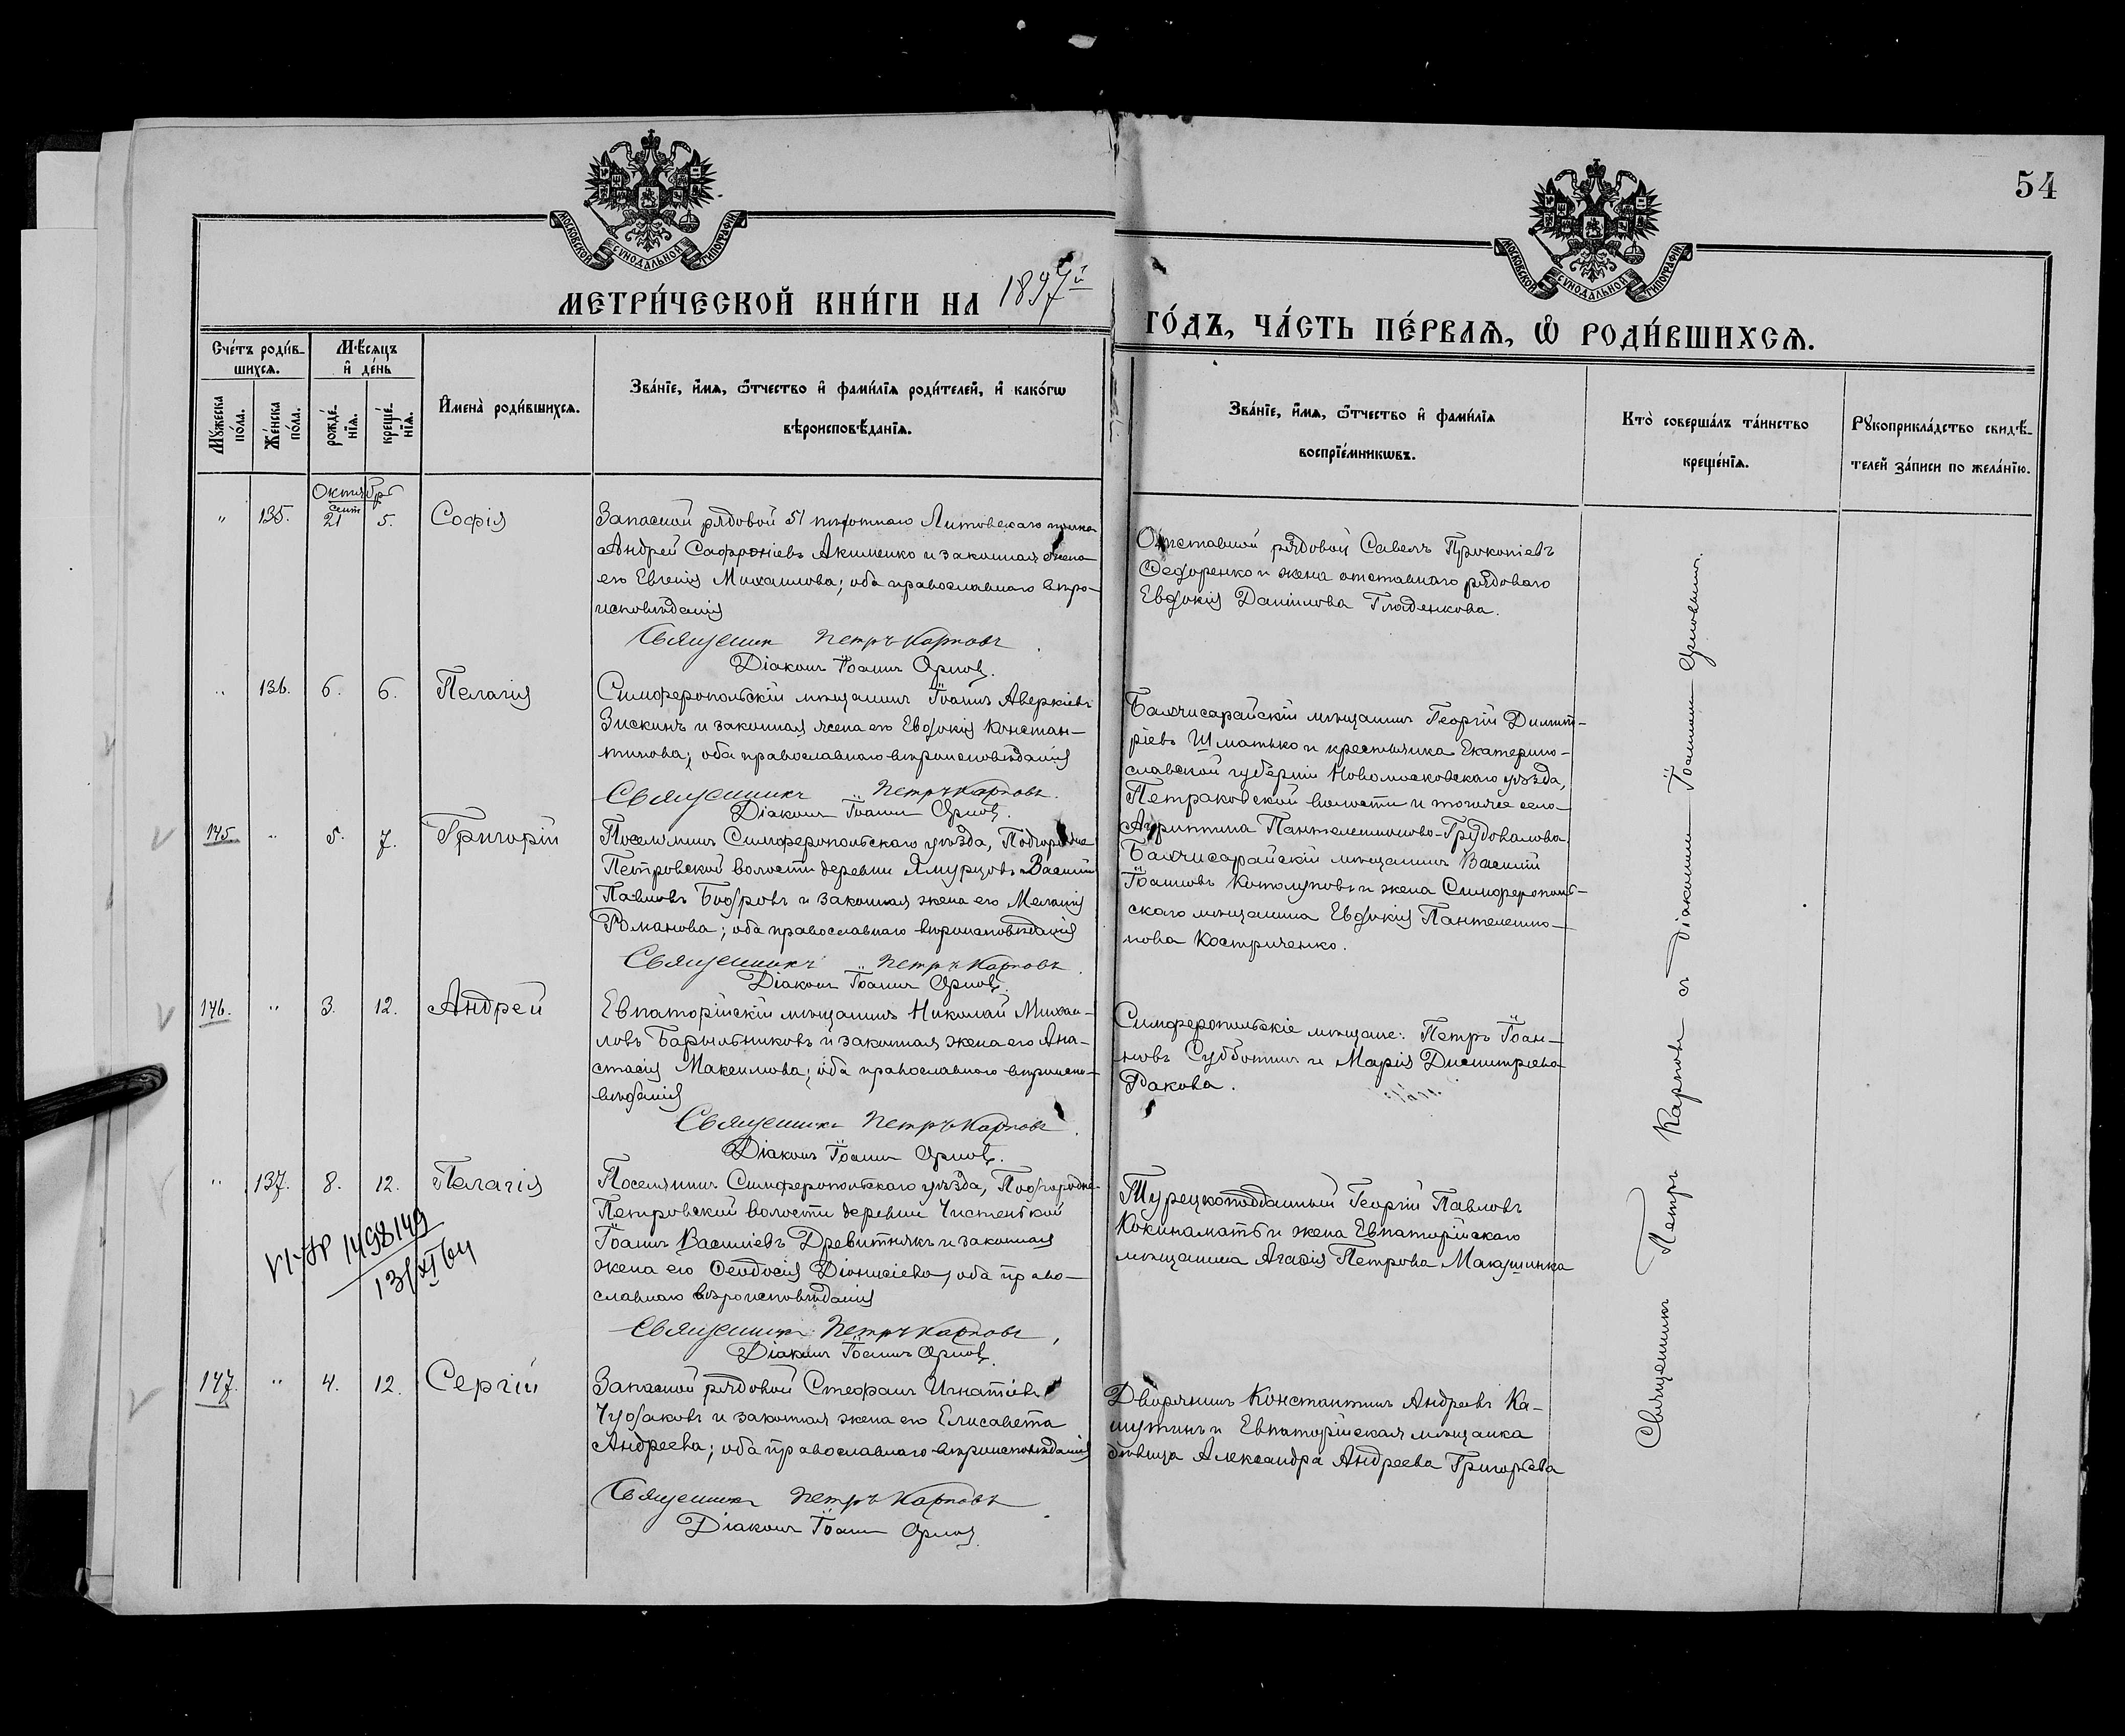 54
МОСКОВСКОЙ СѴНОДАЛЬНОЙ ТИПОГРАФІИ
МОСКОВСКОЙ СѴНОДАЛЬНОЙ ТИПОГРАФІИ
МЕТРИ́ЧЕСКОЙ КНИ́ГИ НА 1897й
ГО́ДЪ, ЧА́СТЬ ПЕ́РВАѦ, Ѽ РОДИ́ВШИХСѦ.
Сче́тъ роди́в-
шихсѧ.
Мꙋ́жеска по́ла.
Же́нска по́ла.
Мѣ́сѧцъ и҆ де́нь
рожде́-нїѧ.
креще́-нїѧ.
И҆мена̀ роди́вшихсѧ.
Зва́нїе, и҆́мѧ, ѻ҆́тчество и҆ фами́лїѧ роди́телей, и҆ како́гѡ
вѣроисповѣ́данїѧ.
Зва́нїе, и҆́мѧ, ѻ҆́тчество и҆ фами́лїѧ
воспрїе́мникѡвъ.
Кто̀ соверша́лъ та́инство
креще́нїѧ.
Рꙋкоприкла́дство свидѣ́-
телей за́писи по жела́нїю.
Октябрь
" 135. сент 21 5. Софія
Запасной рядовой 51 пѣхотнаго Литовскаго полка
Андрей Сафроніевъ Акименко и законная жена
его Евгенія Михаилова; оба православнаго вѣро-
исповѣданія
Священникъ Петръ Карповъ
Діаконъ Іоаннъ
Отставной рядовой Савелъ Прокопіевъ
Федоренко и жена отставнаго рядоваго
Евдокія Даніилова Гладенкова.
" 136. 6. 6. Пелагія
Симферопольскій мѣщанинъ Іоаннъ Аверкіевъ
Зискинъ и законная жена его Евдокія Констан-
тинова; оба православнаго вѣроисповѣданія
Священникъ Петръ Карповъ.
Діаконъ Іоаннъ
Бахчисарайскій мѣщанинъ Георгій Димит-
ріевъ Шматько и крестьянка Екатерино-
славской губерніи Новомосковскаго уѣзда,
Петраковской волости и тогоже села
Пантелеимонова-Грудовалова.
145. " 5. 7. Григорій
Поселянинъ Симферопольскаго уѣзда, Подгородне-
Петровской волости деревни Ямурцовъ Василій
Павловъ Бобровъ и законная жена его Меланія
Романова; оба православнаго вѣроисповѣданія
Священникъ Петръ Карповъ.
Діаконъ Іоаннъ
Бахчисарайскій мѣщанинъ Василій
Іоанновъ Котолуповъ и жена Симферополь-
скаго мѣщанина Евдокія Пантелеимо-
нова Костриченко.
146. " 3. 12. Андрей
Евпаторійскій мѣщанинъ Николай Михаи-
ловъ Барыльниковъ и законная жена его Ана-
стасія Максимова; оба православнаго вѣроиспо-
вѣданія
Священникъ Петръ Карповъ.
Діаконъ Іоаннъ
Симферопольскіе мѣщане: Петръ Іоан-
новъ Субботинъ и Марія Димитріева
Ракова.
" 137. 8. 12. Пелагія
Поселянинъ Симферопольскаго уѣзда, Подгородне-
Петровской волости деревни Чистенькой
Іоаннъ Василіевъ Древитнякъ и законная
жена его Феодосія Діонисіева; оба право-
славнаго вѣроисповѣданія
Священникъ Петръ Карповъ,
Діаконъ Іоаннъ
Турецкоподданный Георгій Павловъ
Кокинамать и жена Евпаторійскаго
мѣщанина Агафія Петрова Макушинка
1498149
13/XI 64
147. " 4. 12. Сергій
Запасной рядовой Стефанъ Игнатіевъ
Чудаковъ и законная жена его Елисавета
Андреева; оба православнаго вѣроисповѣданія
Священникъ Петръ Карповъ
Діаконъ Іоаннъ
Дворянинъ Константинъ Андреевъ Ка-
шутинъ и Евпаторійская мѣщанка
дѣвица Александра Андреева Григорьева
Священникъ Петръ Карповъ съ Діакономъ Іоанномъ